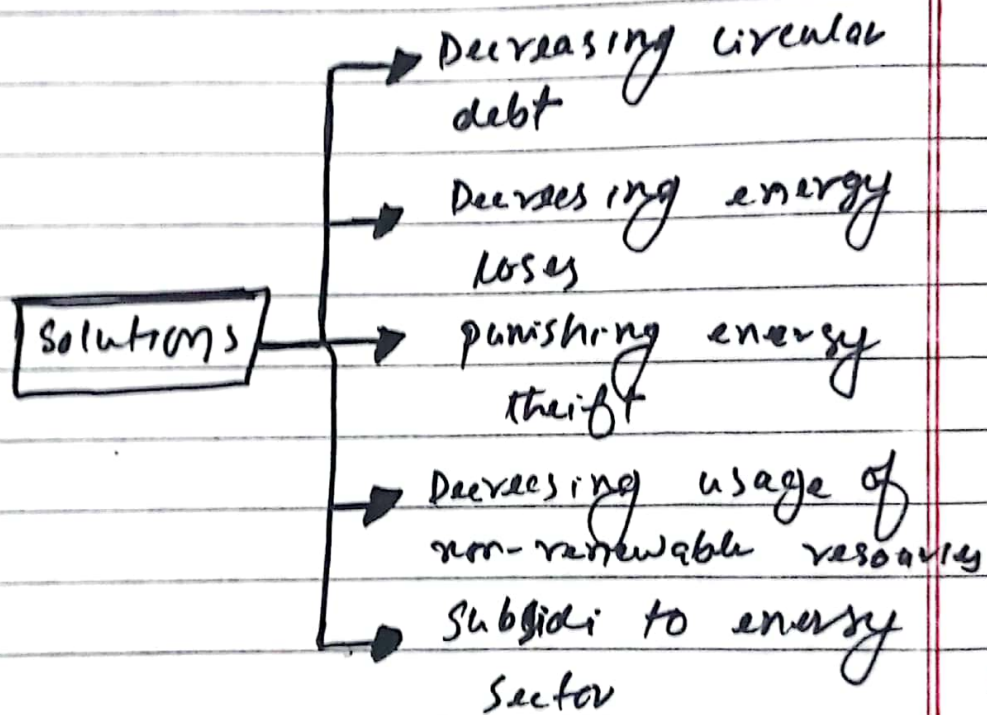 Decreasing circular
debt
Decreesing energy
loses
Solutions
punishing energy
theift
Decreesing usage of
non-renewable resources
Subsidi to energy
Sector